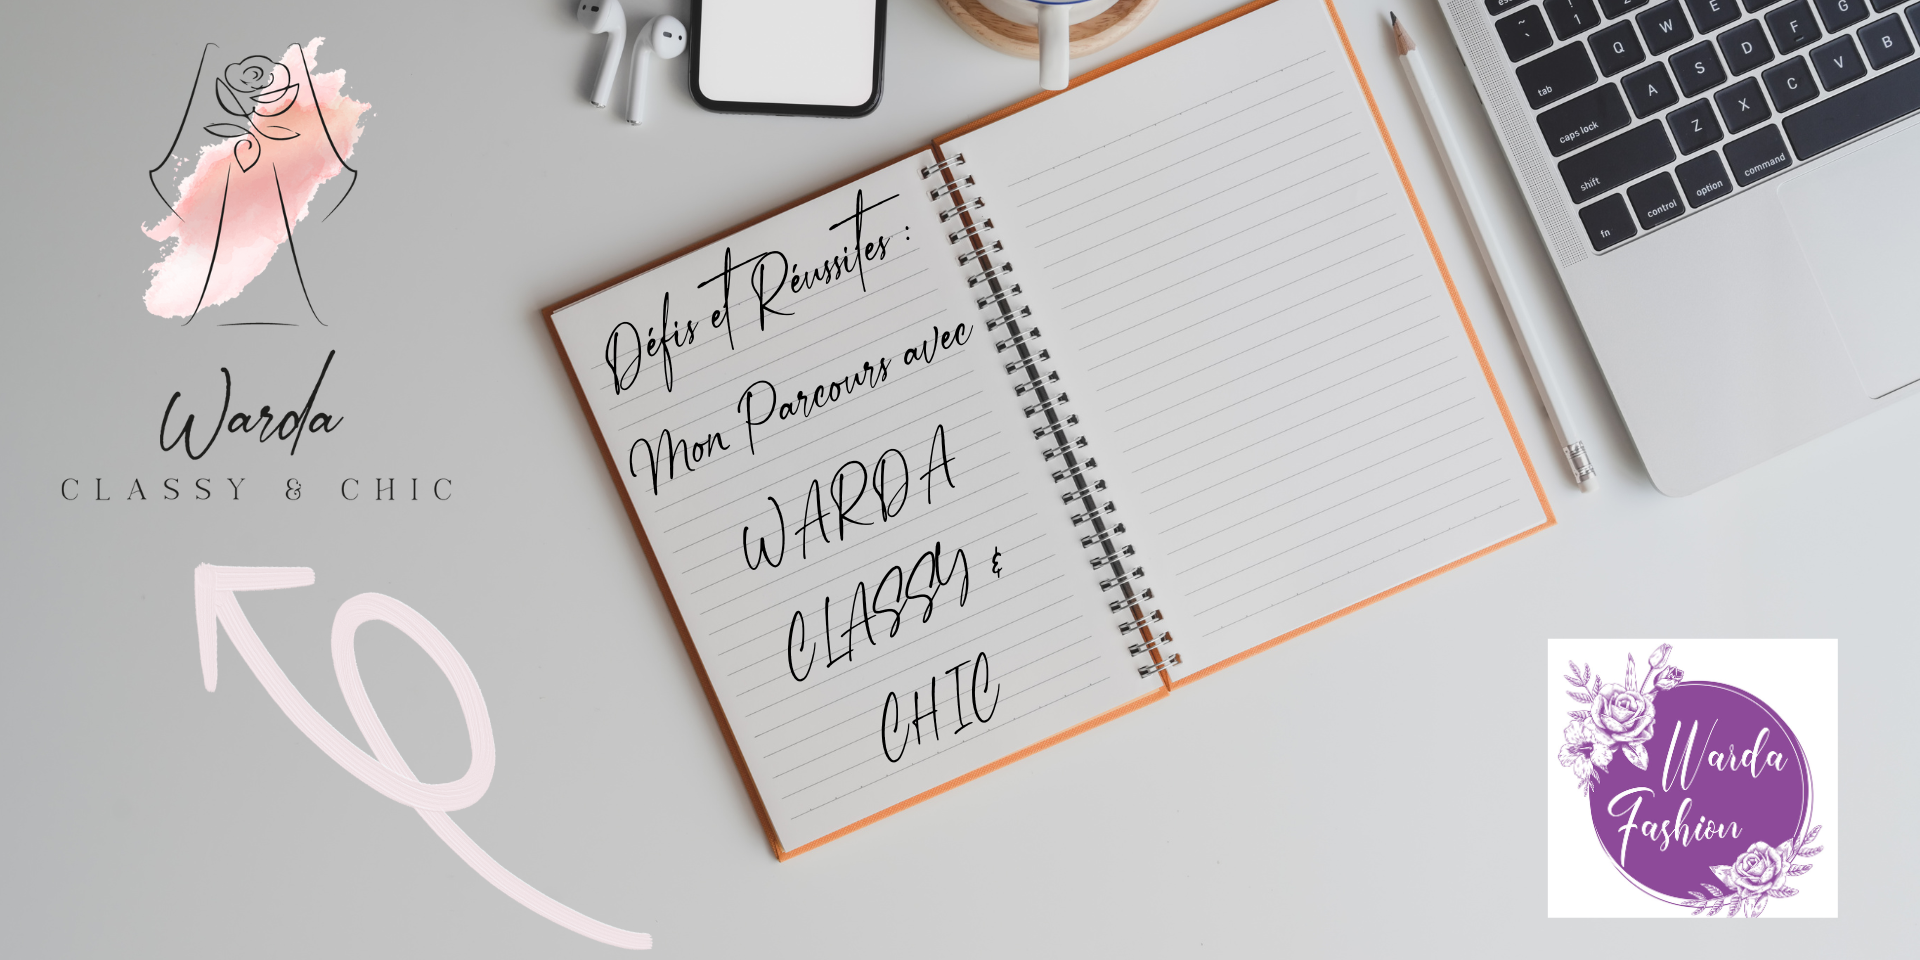 Warda
CLASSY & CHIC
Défis et Réussites :
Mon Parcours avec
WARDA
CLASSY &
CHIC
Warda
Fashion
esc
~
`
!
1
Q
W
E
tab
A
S
D
F
G
caps lock
Z
X
C
V
B
shift
fn
control
option
command